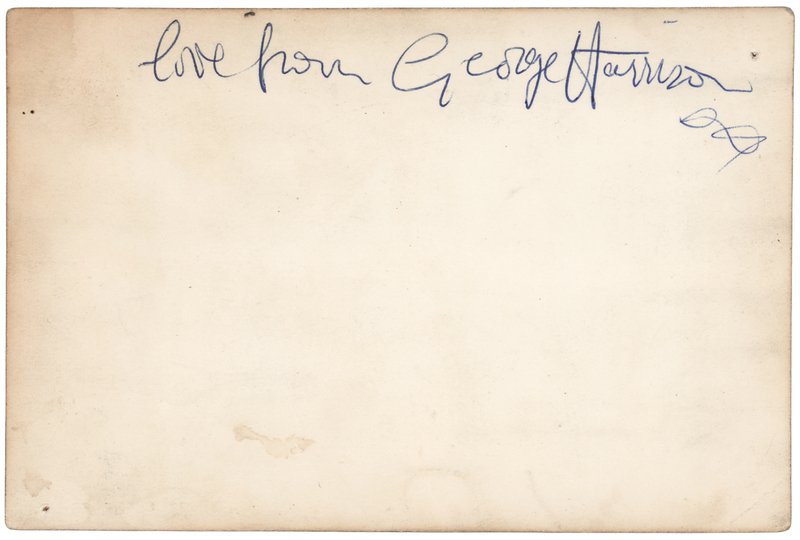 love from George Harrison
xxx